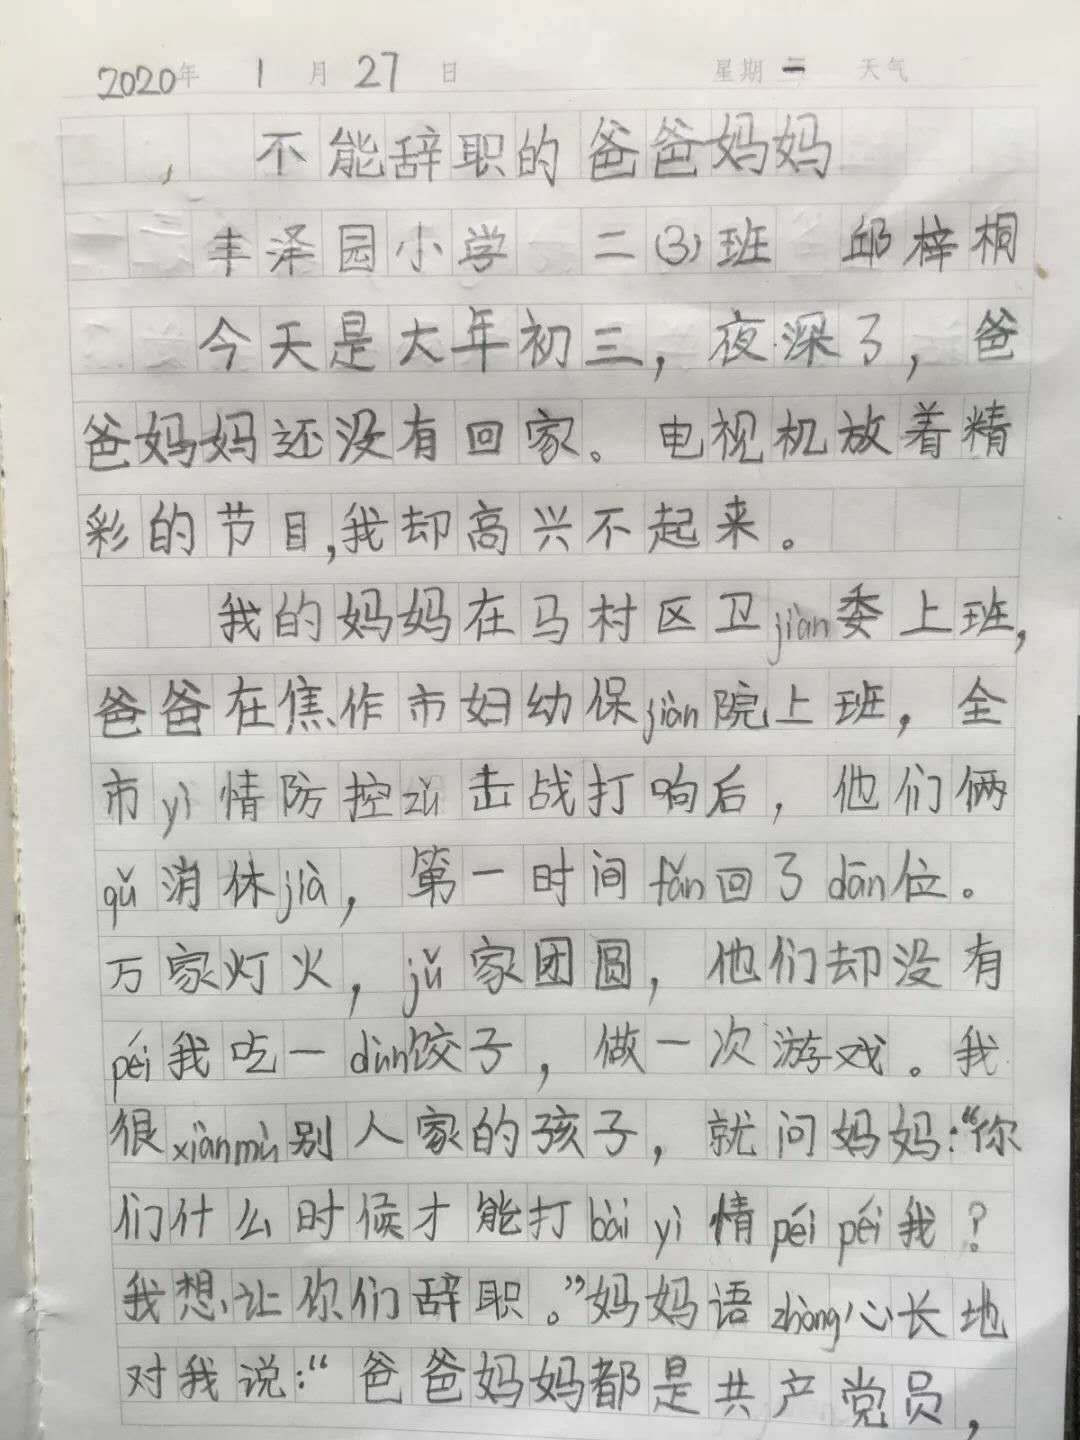 2020年 1月27日 星期一 天气
不能辞职的爸爸妈妈
丰泽园小学 二(3)班 邱梓桐
今天是大年初三，夜深了，爸
爸妈妈还没有回家。电视机放着精
彩的节目,我却高兴不起来。
我的妈妈在马村区卫jiàn委上班,
爸爸在焦作市妇幼保jiàn院上班，全
市yì情防控zǔ击战打响后，他们俩
qǔ消休jià，第一时间fǎn回了dān位。
万家灯火，jǔ家团圆，他们却没有
péi我吃一dùn饺子，做一次游戏。我
很xiànmù别人家的孩子，就问妈妈:“你
们什么时候才能打bài yì情péi péi我？
我想让你们辞职。”妈妈语zhòng心长地
对我说:“爸爸妈妈都是共产党员，